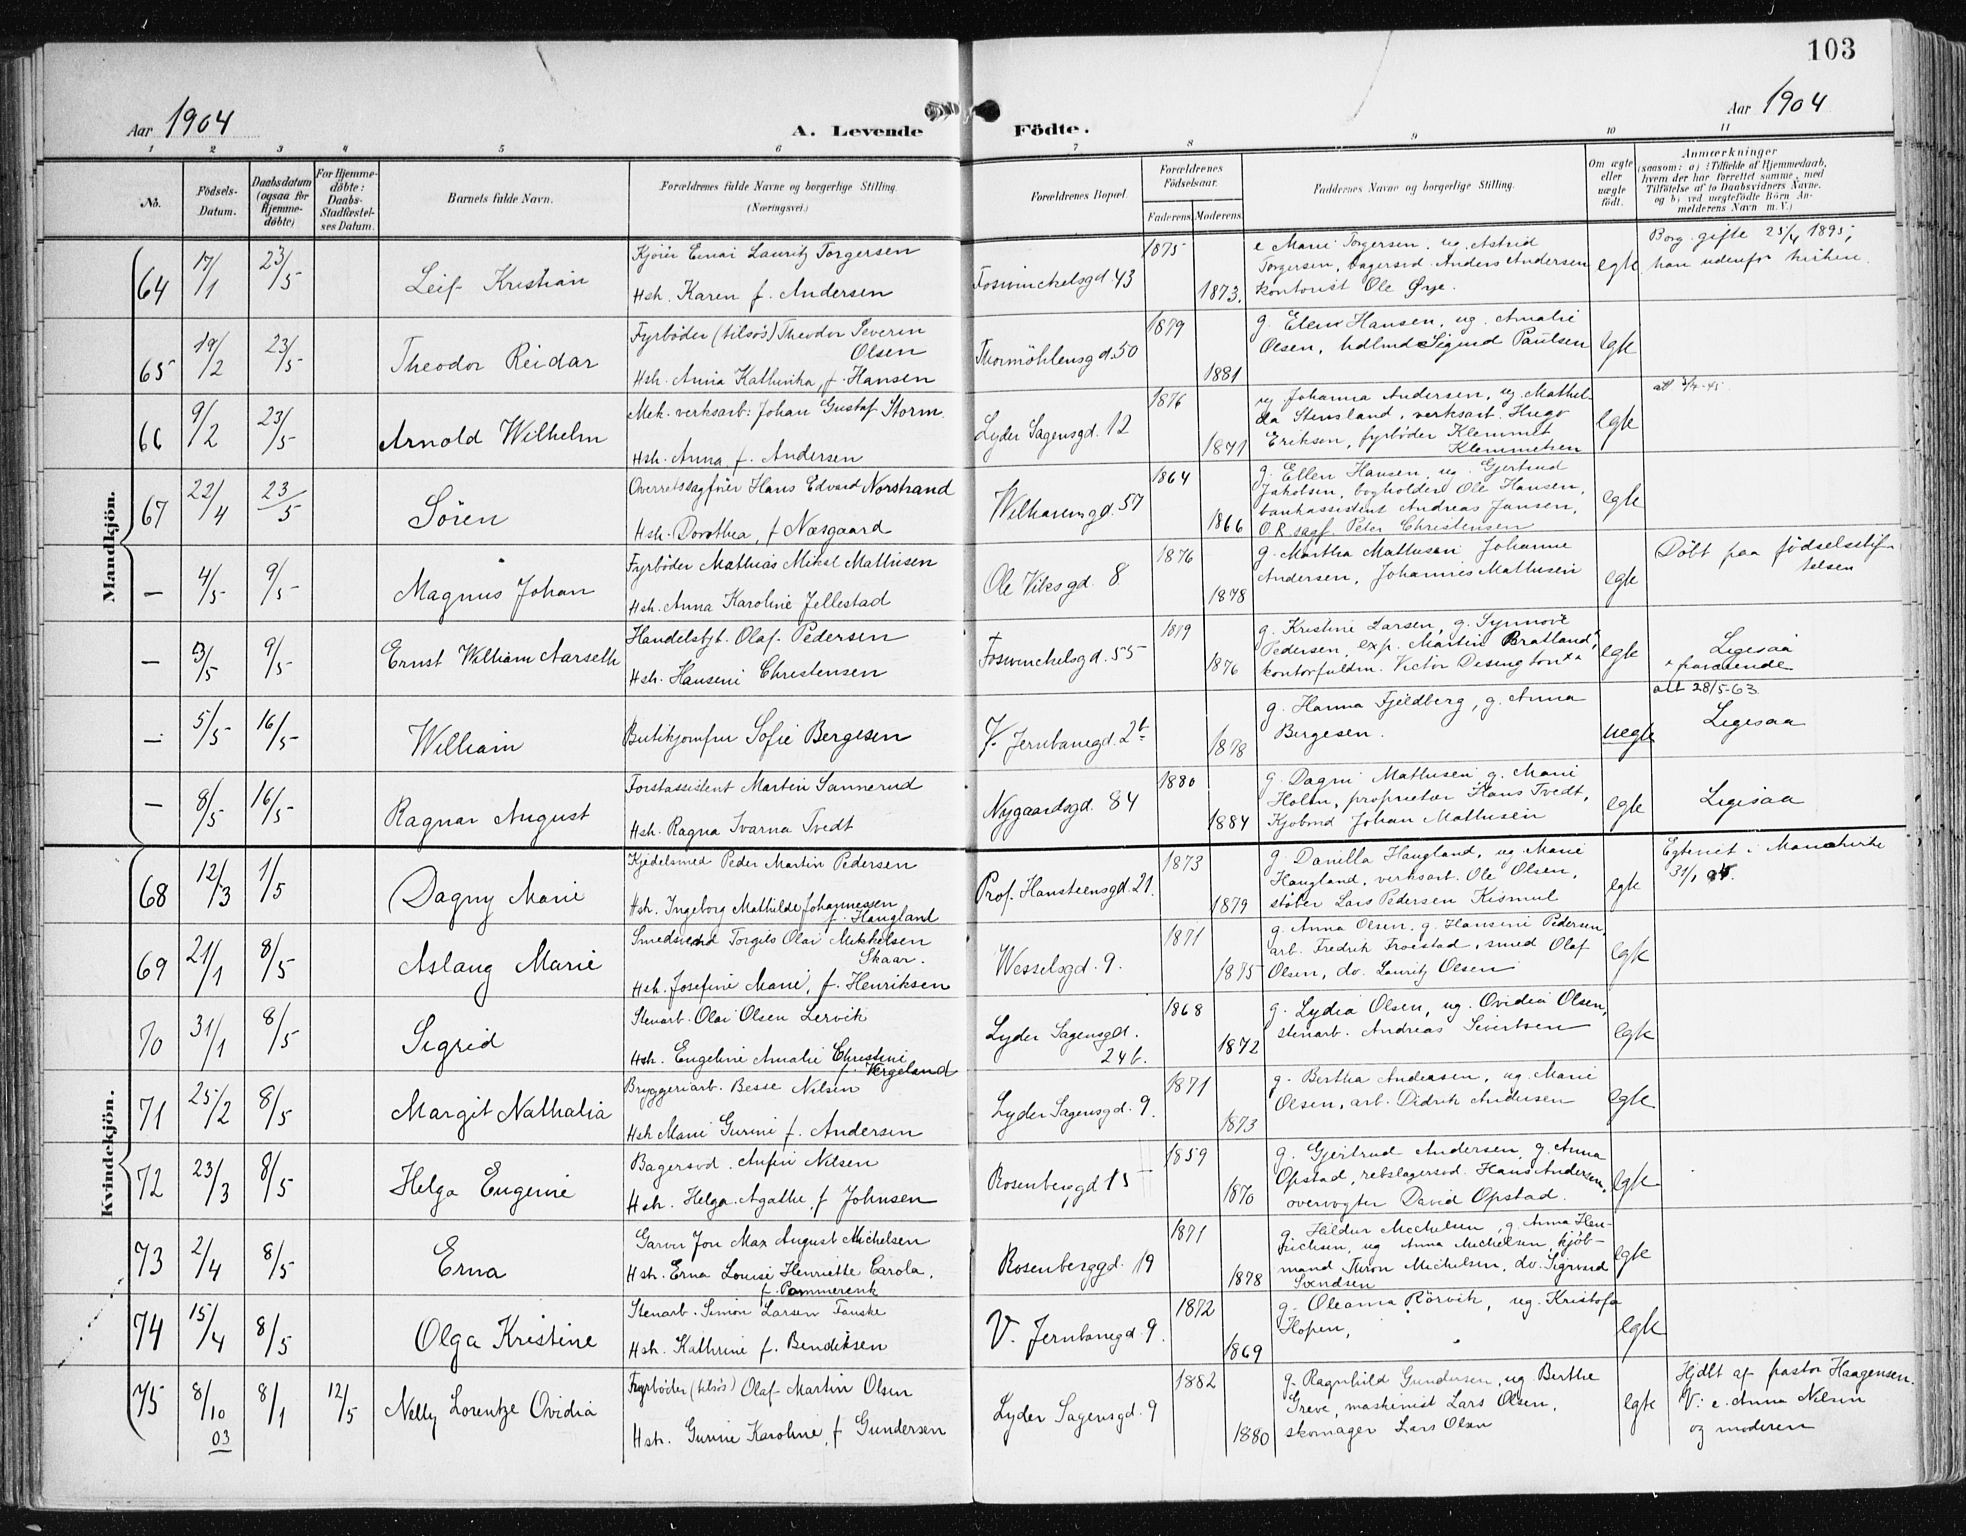 103
Aar 1904
A. Levende Födte.
Aar 1904
1 2 3 4 5 6 7 8 9 10 11
No.
Födsels-Datum.
Daabsdatum (ogsaa for Hjemmedöbte)
For Hjemmedöbte: Daabs-Stadfæstelses Datum.
Barnets fulde Navn.
Forældrenes fulde Navne og borgerlige Stilling.
(Næringsvei.)
Forældrenes Bopæl.
Forældrenes Födselsaar.
Faderens. Moderens.
Faddernes Navne og borgerlige Stilling.
Om ægte eller uægte födt.
Anmærkninger
(saasom: a) i Tilfælde af Hjemmedaab, hvem der har forrettet samme, med Tilföielse af to Daabsvidners Navne, og b) ved uægtefödte Börn Anmelderens Navn m. V.)
Mandkjön.
64 17/1 23/5 Leif Kristian
Kjører Einar Lauritz Torgersen
Hst. Karen f. Andersen
Foswinckelsgd 43 1875 1873.
e Marie Torgersen, ug. Astrid
Torgersen, bagersvd Anders Andersen
kontorist Ole Øye.
egte
Borg. gifte 25/4 1895,
han udenfor kirken.
65 19/2 23/5 Theodor Reidar
Fyrbøder (tilsøs) Theodor Severin
Olsen
Hst. Anna Kathinka, f. Hansen
Thormöhlensgd. 50 1879 1881
g. Elene Hansen, ug. Amalie
Olsen, Sigurd Paulsen
egte
66 9/2 23/5 Arnold Wilhelm
Mek. verksarb: Johan Gustaf Storm
Hst. Anna f. Andersen
Lyder Sagensgd. 12 1876 1871
ug Johanna Andersen, ug. Mathilda
Stensland, verksarb. Hugo
Eriksen, fyrbøder Klemmet
Klemmetsen
egte
67 22/4 23/5 Sören
Overretssagfører Hans Edvard Norstrand
Hst. Dorothea, f Næsgaard
Welhavensgd. 57 1864 1866
g. Ellen Hansen, ug. Gjertrud
Jakobsen, bogholder Ole Hansen,
bankassistent Andreas Jansen,
O.R.sagf. Peter Christensen
egte
— 4/5 9/5 Magnus Johan
Fyrbøder Mathias Mikal Mathisen
Hst. Anna Karoline Jellestad
Ole Viksgd. 8 1876 1878
g. Martha Mathisen Johanne
Andersen, Johannes Mathisen
egte
Döbt paa fødselsstiftelsen
— 3/5 9/5 Ernst William Aarseth
Handelsbjt. Olaf Pedersen
Hst. Hansine Christensen
Foswinckelsgd. 55 1879 1876
g. Kristine Larsen, g. Synnöve
Pedersen, exp. Martin Bratland,
kontorfuldm. Victor Desington
egte
Ligesaa
— 5/5 16/5 William
Butikjomfru Sofie Bergesen
V. Jernbanegd. 2b 1878
g. Hanna Fjeldberg, g. Anna
Bergesen.
uegte
att 28/5-63
Ligesaa
— 8/5 16/5 Ragnar August
Forstassistent Martin Sannerud
Hst. Ragna Ivarna Tvedt
Nygaardsgd. 84 1880 1884
g. Dagni Mathisen g. Marie
Holm, proprietær Hans Tvedt,
Kjøbmd Johan Mathisen
egte
Ligesaa
Kvindekjön.
68 12/3 1/5 Dagny Marie
Kjedelsmed Peder Martin Pedersen
Hst. Ingeborg Mathilde Johannessen
f. Haugland
Prof. Hansteensgd. 21. 1873 1879
g. Danilla Haugland, ug Marie
Haugland, verksarb. Ole Olsen,
støber Lars Pedersen Kismul
egte
69 21/1 8/5 Aslaug Marie
Smedsvend Torgils Olai Mikkelsen
Skaar.
Hst. Josefine Marie, f. Henriksen
Wesselsgd. 9. 1871 1875
g. Anna Olsen, g. Hansine Pedersen,
arb. Fredrik Froestad, smed Olaf
Olsen, do. Lauritz Olsen
egte
70 31/1 8/5 Sigrid
Stenarb. Olai Olsen Lervik
Hst. Engeline Amalie Christine
f. Vergeland
Lyder Sagensgd.
24b. 1868 1872
g. Lydia Olsen, ug. Ovidia Olsen,
stenarb. Andreas Sivertsen
egte
71 25/2 8/5 Margit Nathalia
Bryggeriarb. Besse Nilsen
Hst Marie Gurine f. Andersen
Lyder Sagensgd. 9. 1871 1873
g. Bertha Andersen, ug. Marie
Olsen, arb. Didrik Andersen
egte
72 23/3 8/5 Helga Eugenie
Bagersvd. Anfin Nilsen
Hst. Helga Agathe, f Johnsen
Rosenberggd 15 1859 1870
g. Gjertrud Andersen, g. Anna
Opstad, rebslagersvd. Hans Andersen,
overvogter David Opstad.
egte
73 2/4 8/5 Erna
Garver Jon Max August Michelsen
Hst. Erna Louise Henriette Carola,
f. Pommerenk
Rosenberggd. 19 1871 1878
g. Hildur Michelsen, g. Anna Henrichsen,
ug Anna Michelsen, kjöbmand
Thron Michelsen, do. Sigvard
Svendsen
egte
74 15/4 8/5 Olga Kristine
Stenarb. Simon Larsen Fauske
Hst. Kathrine f. Bendiksen
V. Jernbanegd. 9. 1872 1869
g. Oleana Rörvik, ug. Kristofa
Hopen,
egte
75 8/10 03 8/1 12/5 Nelly Lorentze Ovidia
Fyrbøder (tilsøs) Olaf Martin Olsen
Hst. Gurine Karoline, f Gundersen
Lyder Sagensgd. 9 1882 1880
g. Ragnhild Gundersen, ug Berthe
Greve, maskinist Lars Olsen,
skomager Lars Olsen
egte
Hjdbt af pastor Haagensen.
V: e. Anna Nilsen
og moderen